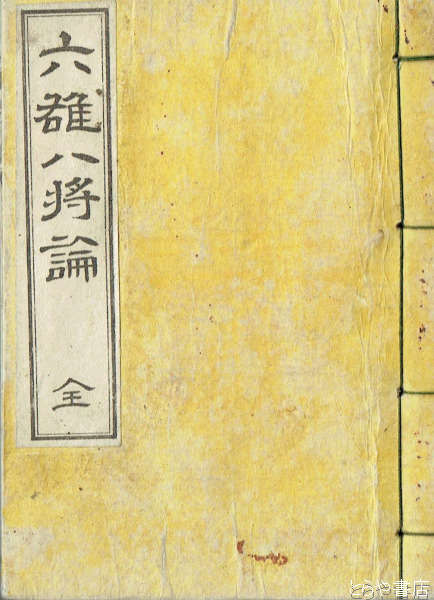 六雄八将論
全
とらや書店